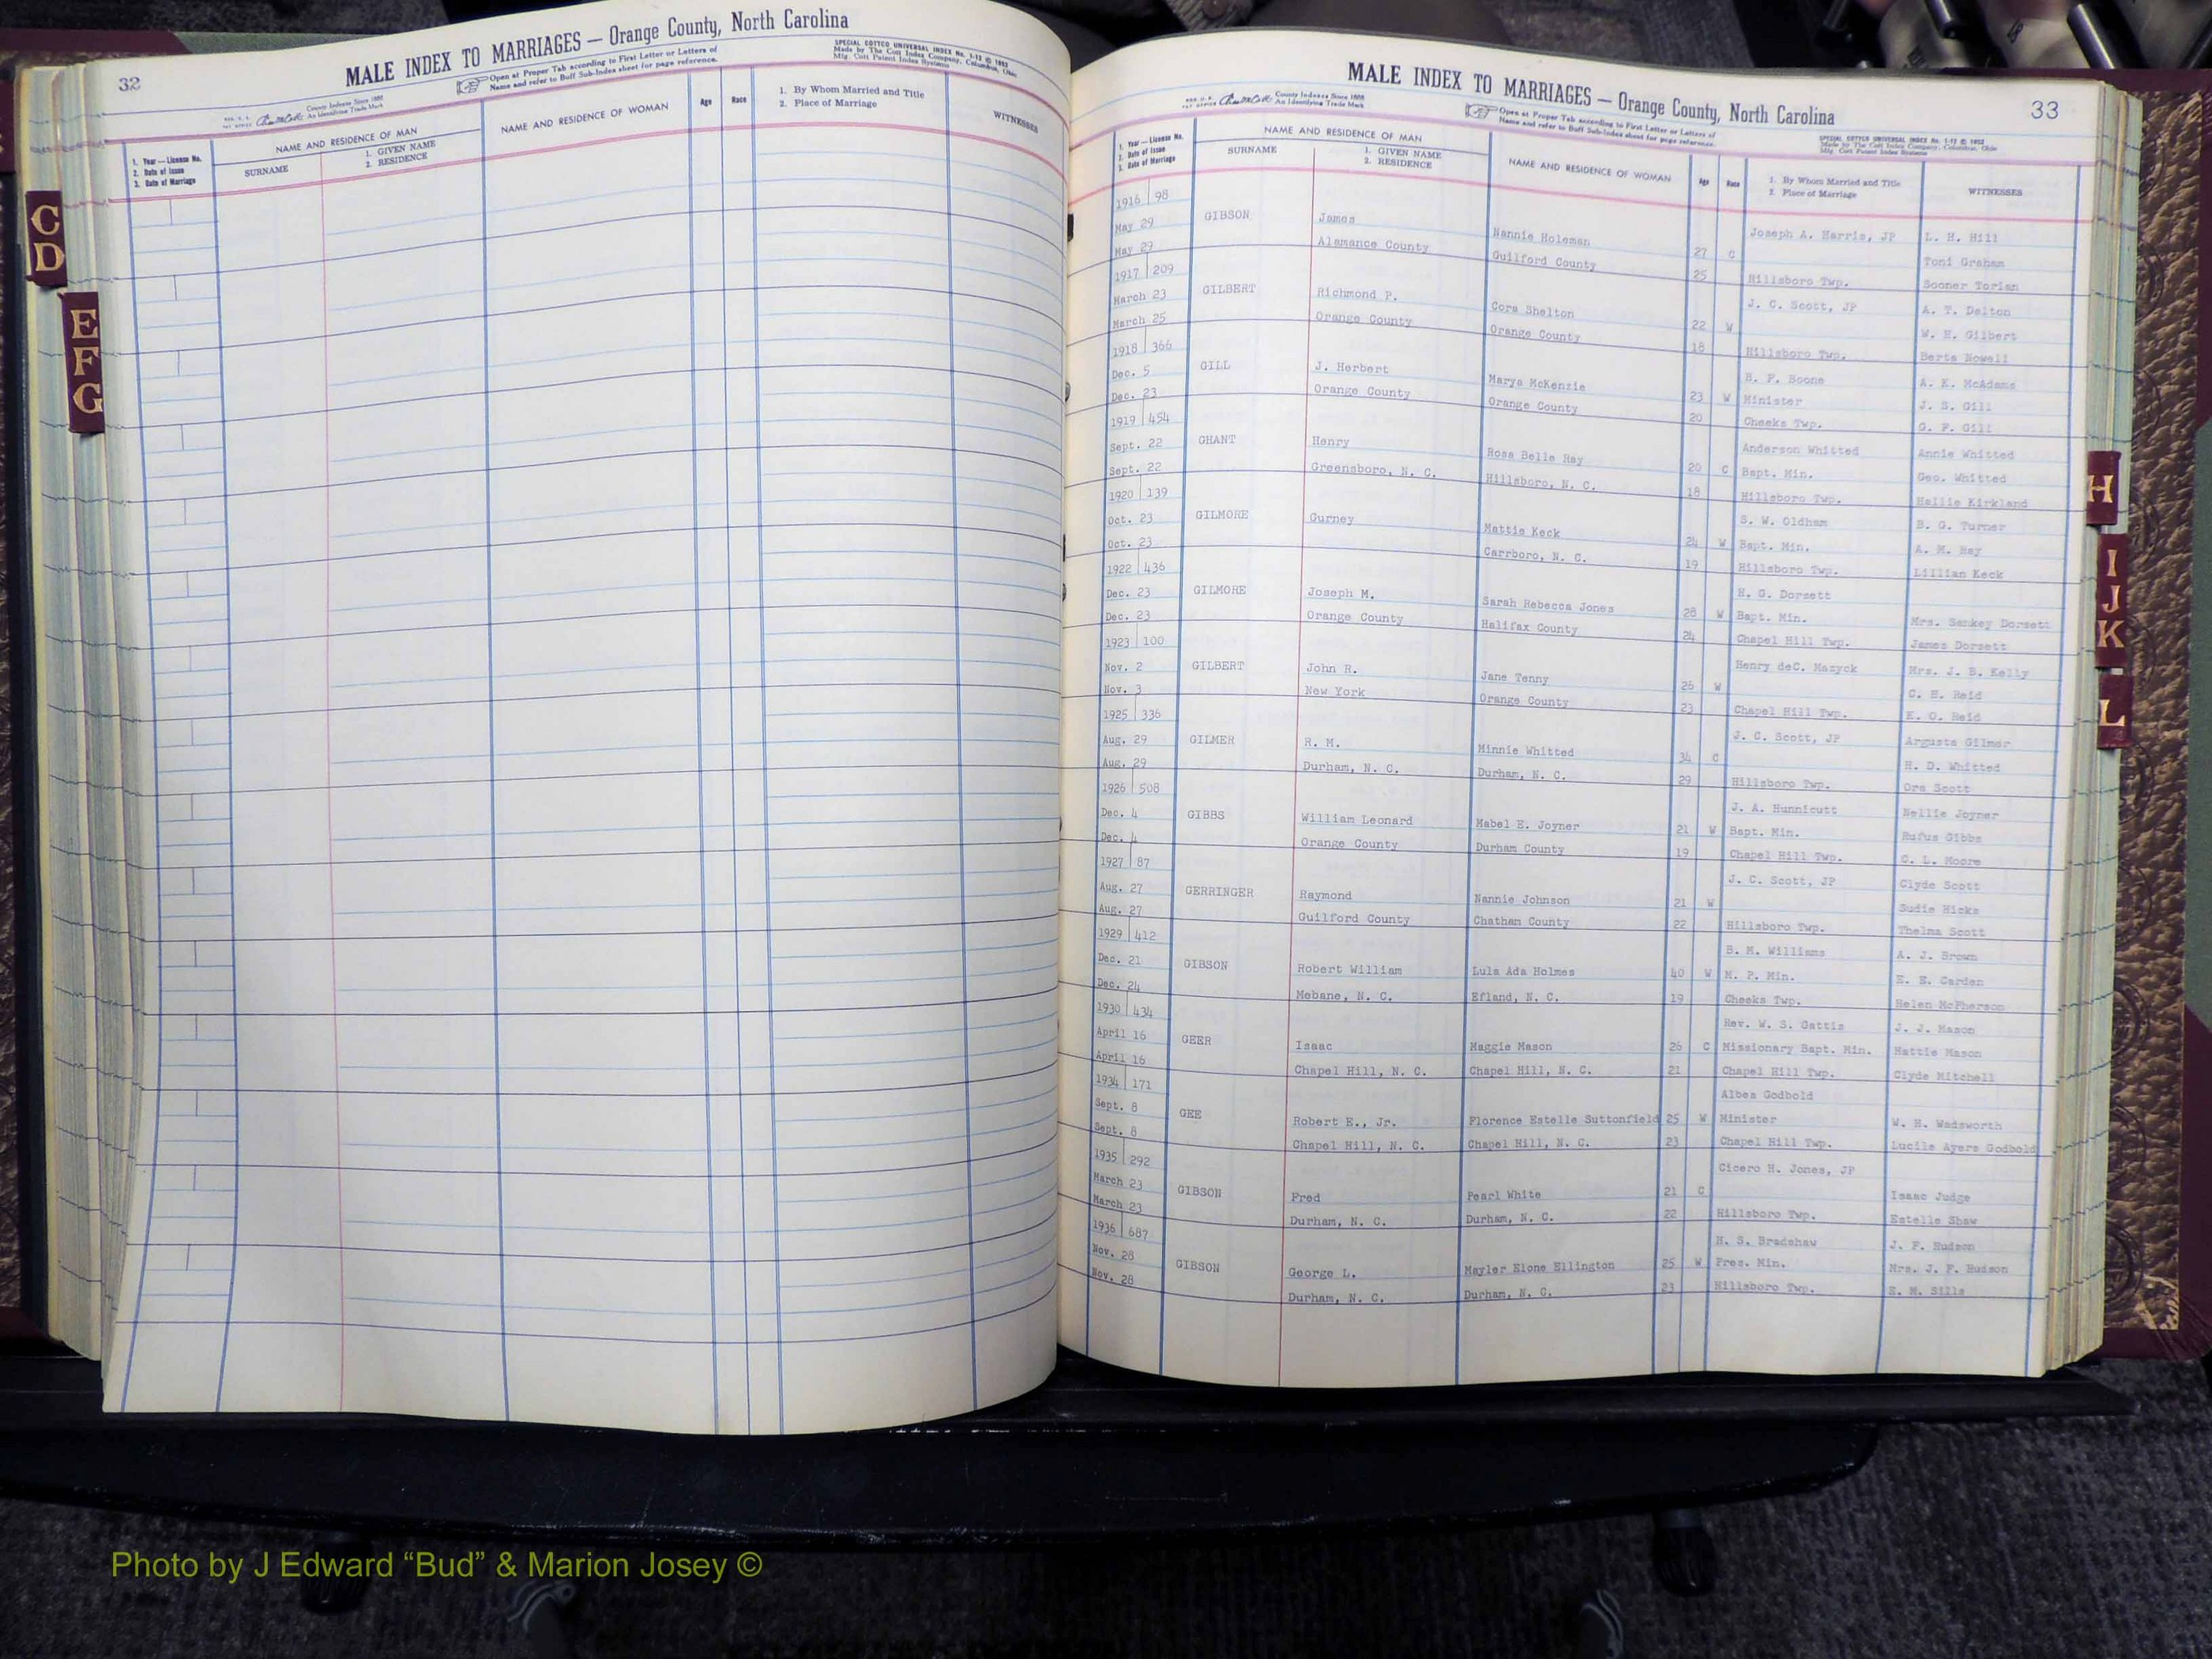 32
MALE INDEX TO MARRIAGES — Orange County, North Carolina
Open at Proper Tab according to First Letter or Letters of
Name and refer to Buff Sub-Index sheet for page reference.
SPECIAL COTTCO UNIVERSAL INDEX No. 1-12 © 1952
Made by The Cott Index Company, Columbus, Ohio
Mfg. Cott Patent Index Systems
County Indexes Since 1888
An Identifying Trade Mark
1. Year — License No.
2. Date of Issue
3. Date of Marriage
NAME AND RESIDENCE OF MAN
SURNAME
1. GIVEN NAME
2. RESIDENCE
NAME AND RESIDENCE OF WOMAN
Age
Race
1. By Whom Married and Title
2. Place of Marriage
WITNESSES
C
D
E
F
G
MALE INDEX TO MARRIAGES — Orange County, North Carolina
33
County Indexes Since 1888
An Identifying Trade Mark
Open at Proper Tab according to First Letter or Letters of
Name and refer to Buff Sub-Index sheet for page reference.
SPECIAL COTTCO UNIVERSAL INDEX No. 1-12 © 1952
Made by The Cott Index Company, Columbus, Ohio
Mfg. Cott Patent Index Systems
1. Year — License No.
2. Date of Issue
3. Date of Marriage
NAME AND RESIDENCE OF MAN
SURNAME
1. GIVEN NAME
2. RESIDENCE
NAME AND RESIDENCE OF WOMAN
Age
Race
1. By Whom Married and Title
2. Place of Marriage
WITNESSES
1916 98 Joseph A. Harris, JP L. H. Hill
May 29 GIBSON James Nannie Holeman 27 C Toni Graham
May 29 Alamance County Guilford County 25 Hillsboro Twp. Sooner Torian
1917 209 J. C. Scott, JP A. T. Dalton
March 23 GILBERT Richmond P. Cora Shelton 22 W W. H. Gilbert
March 25 Orange County Orange County 18 Hillsboro Twp. Berta Nowell
1918 366 B. F. Boone A. K. McAdams
Dec. 5 GILL J. Herbert Marya McKenzie 23 W Minister J. S. Gill
Dec. 23 Orange County Orange County 20 Cheeks Twp. G. F. Gill
1919 454 Anderson Whitted Annie Whitted
Sept. 22 GHANT Henry Rosa Belle Ray 20 C Bapt. Min. Geo. Whitted
Sept. 22 Greensboro, N. C. Hillsboro, N. C. 18 Hillsboro Twp. Hallie Kirkland
1920 139 S. W. Oldham B. G. Turner
Oct. 23 GILMORE Gurney Mattie Keck 24 W Bapt. Min. A. M. Ray
Oct. 23 Carrboro, N. C. 19 Hillsboro Twp. Lillian Keck
1922 436 H. G. Dorsett
Dec. 23 GILMORE Joseph M. Sarah Rebecca Jones 28 W Bapt. Min. Mrs. Sankey Dorsett
Dec. 23 Orange County Halifax County 24 Chapel Hill Twp. James Dorsett
1923 100 Henry deC. Mazyck Mrs. J. B. Kelly
Nov. 2 GILBERT John R. Jane Tenny 26 W C. H. Reid
Nov. 3 New York Orange County 23 Chapel Hill Twp. K. O. Reid
1925 336 J. C. Scott, JP Argusta Gilmer
Aug. 29 GILMER R. M. Minnie Whitted 34 C H. D. Whitted
Aug. 29 Durham, N. C. Durham, N. C. 29 Hillsboro Twp. Ora Scott
1926 508 J. A. Hunnicutt Nellie Joyner
Dec. 4 GIBBS William Leonard Mabel E. Joyner 21 W Bapt. Min. Rufus Gibbs
Dec. 4 Orange County Durham County 19 Chapel Hill Twp. C. L. Moore
1927 87 J. C. Scott, JP Clyde Scott
Aug. 27 GERRINGER Raymond Nannie Johnson 21 W Sudie Hicks
Aug. 27 Guilford County Chatham County 22 Hillsboro Twp. Thelma Scott
1929 412 B. M. Williams A. J. Brown
Dec. 21 GIBSON Robert William Lula Ada Holmes 40 W M. P. Min. E. E. Carden
Dec. 24 Mebane, N. C. Efland, N. C. 19 Cheeks Twp. Helen McPherson
1930 434 Rev. W. S. Gattis J. J. Mason
April 16 GEER Isaac Maggie Mason 26 C Missionary Bapt. Min. Hattie Mason
April 16 Chapel Hill, N. C. Chapel Hill, N. C. 21 Chapel Hill Twp. Clyde Mitchell
1934 171 Albea Godbold
Sept. 8 GEE Robert E., Jr. Florence Estelle Suttonfield 25 W Minister W. H. Wadsworth
Sept. 8 Chapel Hill, N. C. Chapel Hill, N. C. 23 Chapel Hill Twp. Lucile Ayers Godbold
1935 292 Cicero H. Jones, JP
March 23 GIBSON Fred Pearl White 21 C Isaac Judge
March 23 Durham, N. C. Durham, N. C. 22 Hillsboro Twp. Estelle Shaw
1936 687 H. S. Bradshaw J. F. Hudson
Nov. 28 GIBSON George L. Mayler Elone Ellington 25 W Pres. Min. Mrs. J. F. Hudson
Nov. 28 Durham, N. C. Durham, N. C. 23 Hillsboro Twp. E. M. Sills
H
I
J
K
L
Photo by J Edward “Bud” & Marion Josey ©